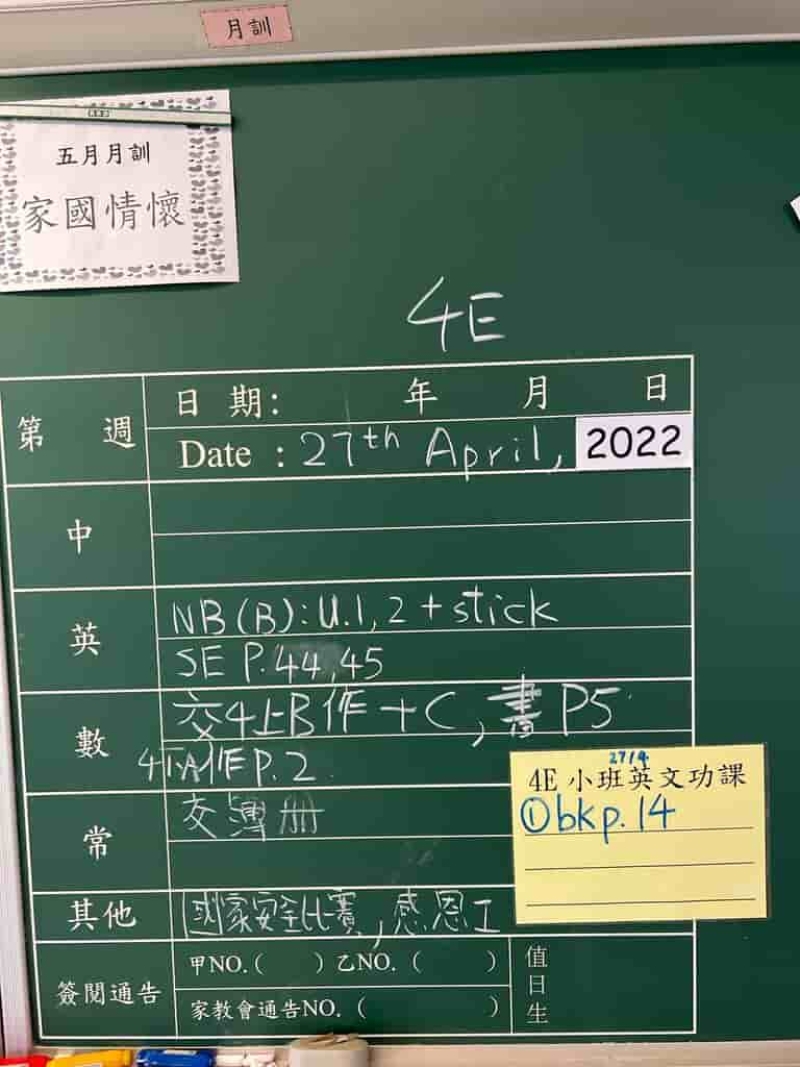 月訓
五月月訓
家國情懷
4E
第 週
日 期： 年 月 日
Date : 27th April, 2022
中
英
NB(B): U.1, 2 + stick
SE P.44,45
數
交4上B作 + C, 書 P5
4下A作 P.2
常
交簿冊
27/4
4E 小班英文功課
①bk p. 14
其他
國家安全比賽, 感恩工
簽閱通告
甲NO. ( ) 乙NO. ( )
家教會通告NO. ( )
值日生